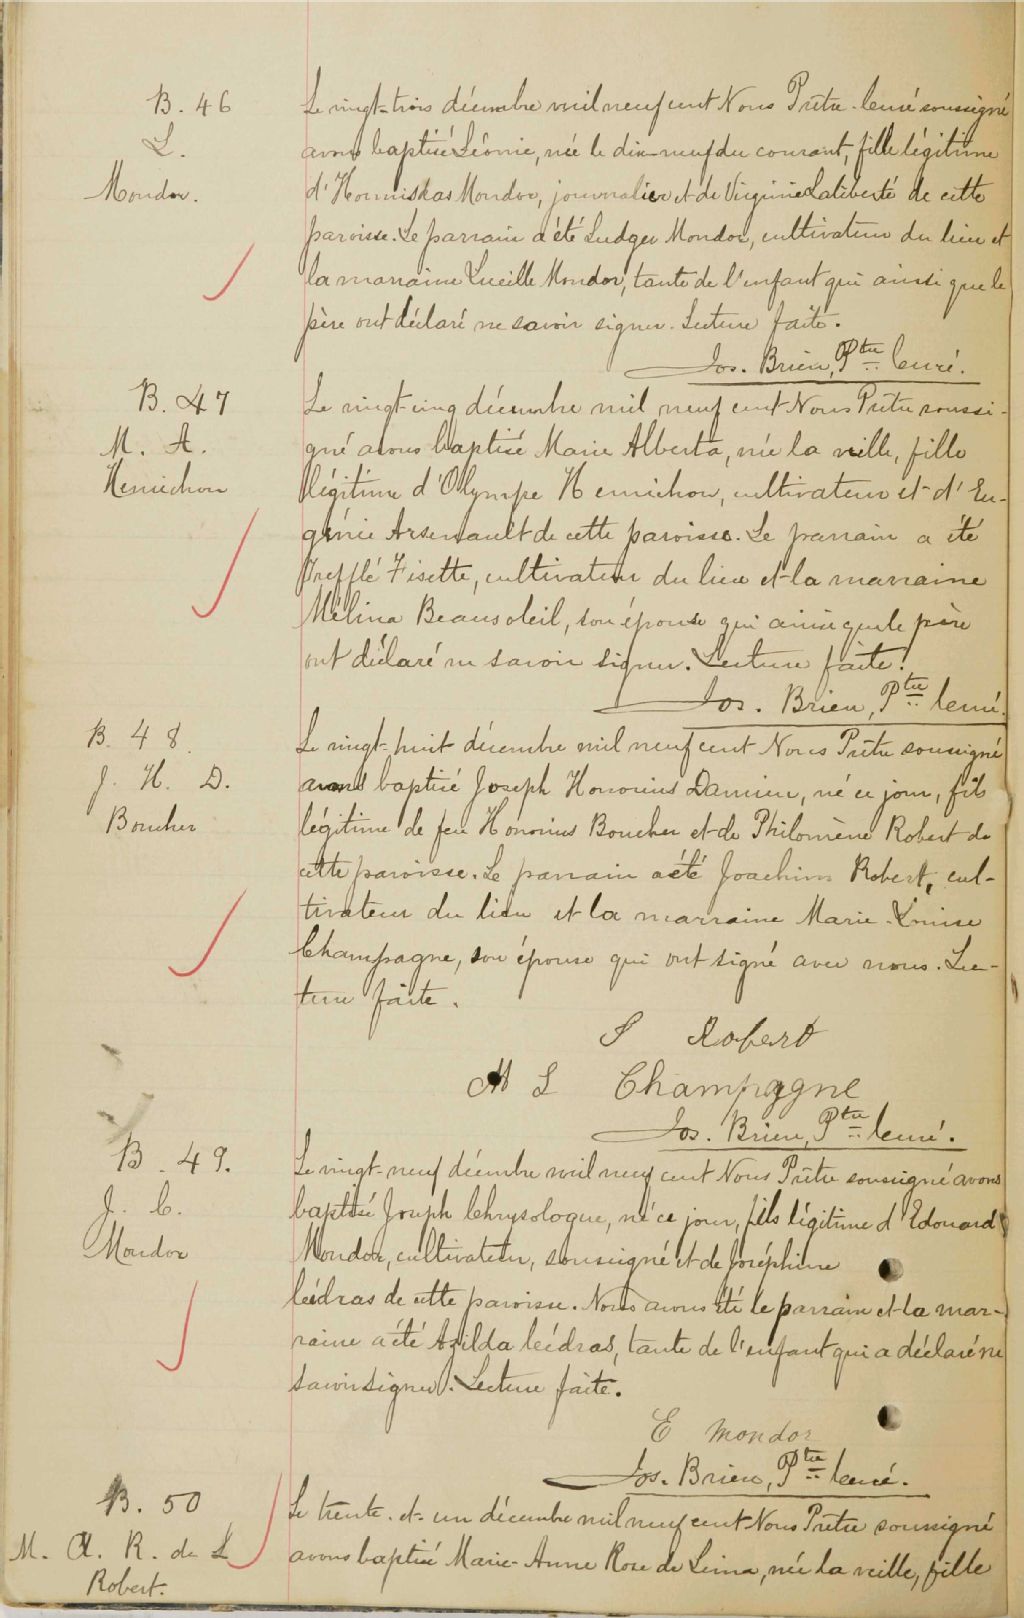 B. 46
L.
Mondor.
Le vingt-trois décembre mil neuf cent Nous Prêtre-Curé soussigné
avons baptisé Léonie, née le dix-neuf du courant, fille légitime
d'Hormiskas Mondor, journalier et de Virginie Laliberté de cette
paroisse. Le parrain a été Ludger Mondor, cultivateur du lieu et
la marraine Lucille Mondor, tante de l'enfant qui ainsi que le
père ont déclaré ne savoir signer. Lecture faite.
Jos. Brien, Ptre Curé.
B. 47
M. A.
Henrichon
Le vingt-cinq décembre mil neuf cent Nous Prêtre soussi-
gné avons baptisé Marie Alberta, née la veille, fille
légitime d'Olympe Henrichon, cultivateur et d'Eu-
génie Arsenault de cette paroisse. Le parrain a été
Trefflé Fisette, cultivateur du lieu et la marraine
Mélina Beausoleil, son épouse qui ainsi que le père
ont déclaré ne savoir signer. Lecture faite.
Jos. Brien, Ptre Curé.
B. 48.
J. H. D.
Boucher
Le vingt-huit décembre mil neuf cent Nous Prêtre soussigné
avons baptisé Joseph Honorius Damien, né ce jour, fils
légitime de feu Honorius Boucher et de Philomène Robert de
cette paroisse. Le parrain a été Joachim Robert, cul-
tivateur du lieu et la marraine Marie-Louise
Champagne, son épouse qui ont signé avec nous. Lec-
ture faite.
J Robert
M L Champagne
Jos. Brien, Ptre Curé.
B. 49.
J. C.
Mondor
Le vingt-neuf décembre mil neuf cent Nous Prêtre soussigné avons
baptisé Joseph Chrysologue, né ce jour, fils légitime d'Edouard
Mondor, cultivateur, soussigné et de Joséphine
Cédras de cette paroisse. Nous avons été le parrain et la mar-
raine a été Azilda Cédras, tante de l'enfant qui a déclaré ne
savoir signer. Lecture faite.
E Mondor
Jos. Brien, Ptre Curé.
B. 50
M. A. R. de L
Robert.
Le trente-et-un décembre mil neuf cent Nous Prêtre soussigné
avons baptisé Marie-Anne Rose de Lima, née la veille, fille